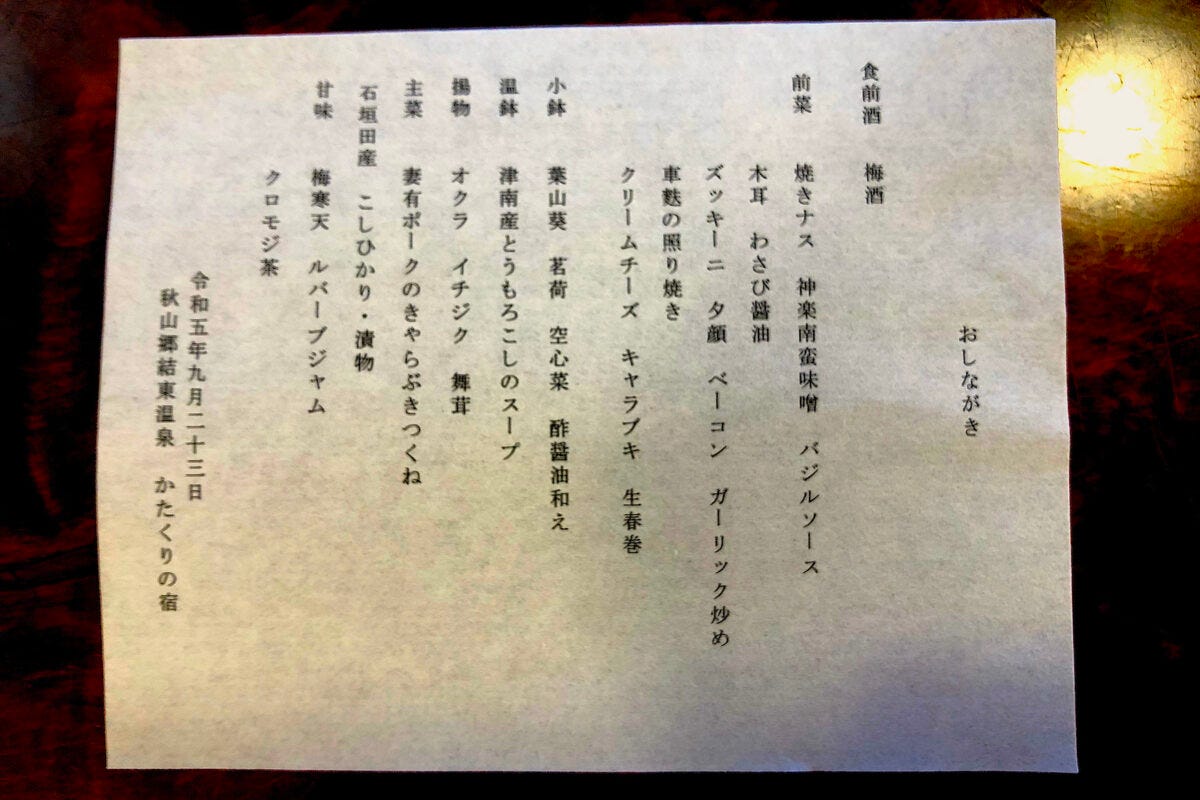 おしながき
食前酒　梅酒
前菜　焼きナス　神楽南蛮味噌　バジルソース
木耳　わさび醤油
ズッキーニ　夕顔　ベーコン　ガーリック炒め
車麩の照り焼き
クリームチーズ　キャラブキ　生春巻
小鉢　葉山葵　茗荷　空心菜　酢醤油和え
温鉢　津南産とうもろこしのスープ
揚物　オクラ　イチジク　舞茸
主菜　妻有ポークのきゃらぶきつくね
石垣田産　こしひかり・漬物
甘味　梅寒天　ルバーブジャム
クロモジ茶
令和五年九月二十三日
秋山郷結東温泉　かたくりの宿